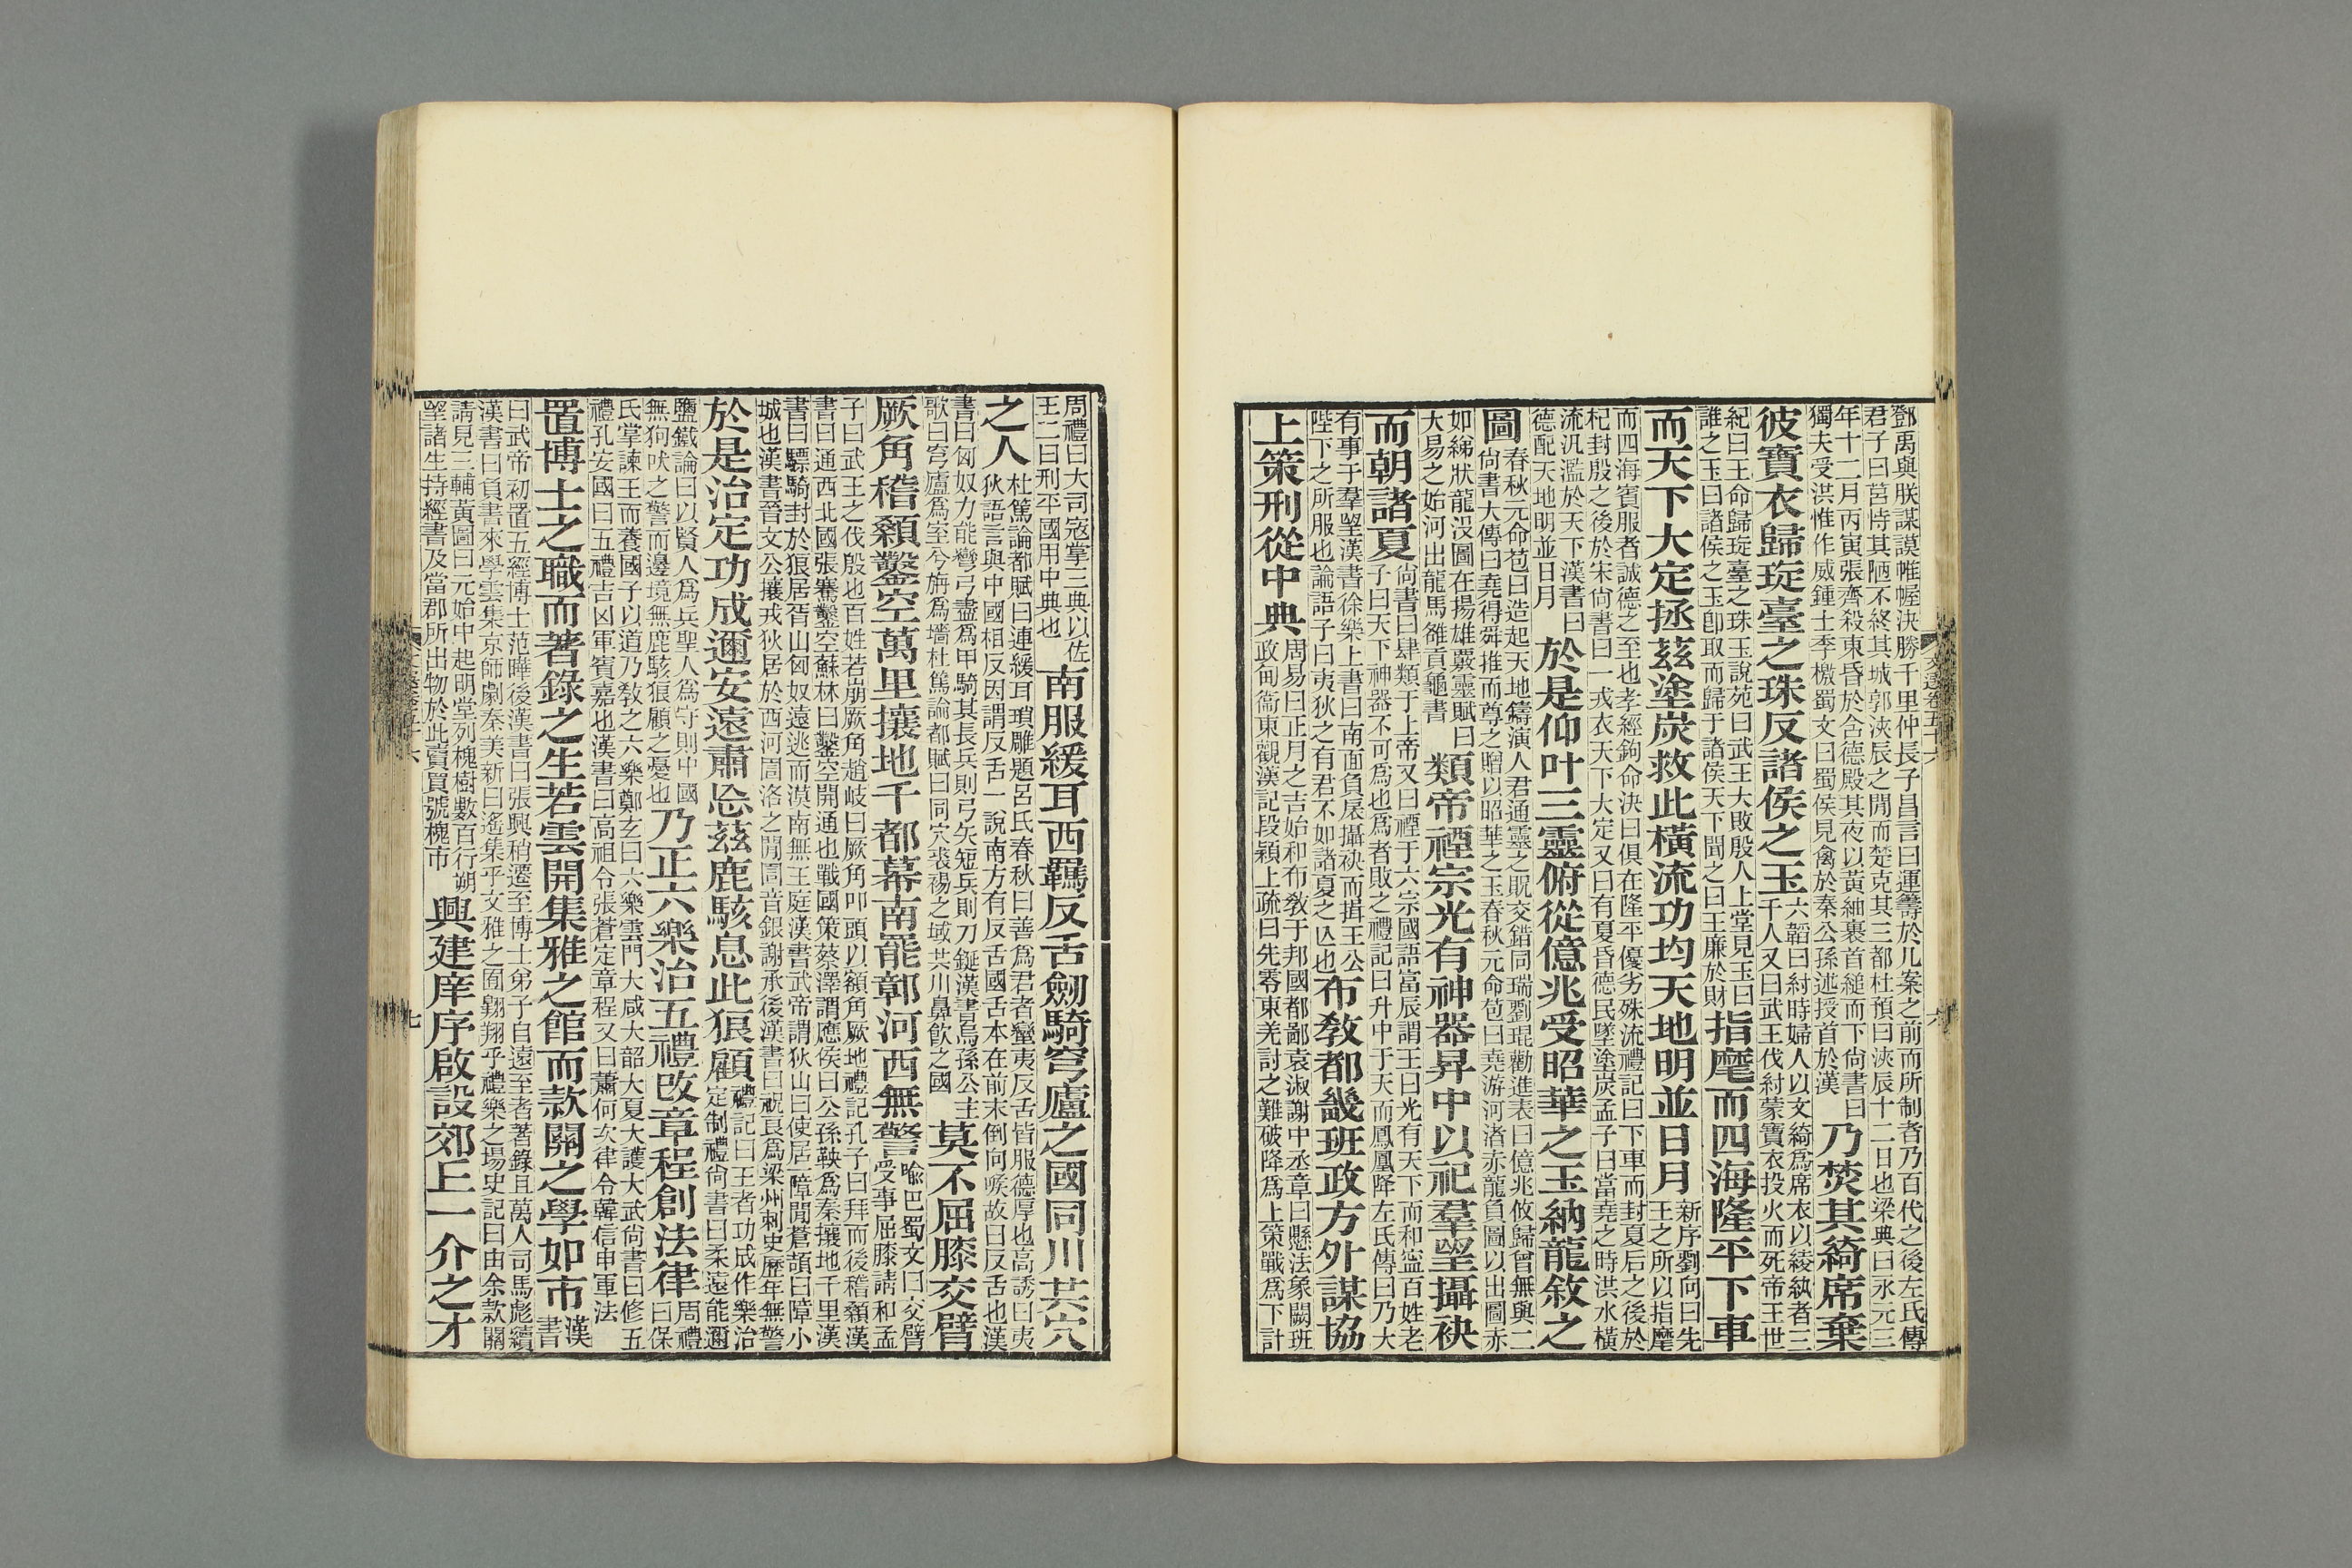 鄧禹與朕謀謨帷幄決勝千里仲長子昌言曰運籌於几案之前而所制者乃百代之後左氏傳
君子曰莒恃其陋不終其城郭浹辰之閒而楚克其三都杜預曰浹辰十二日也梁典曰永元三
年十二月丙寅張齊殺東昏於含德殿其夜以黃紬裹首縋而下尙書曰
獨夫受洪惟作威鍾士季檄蜀文曰蜀侯見禽於秦公孫述授首於漢
乃焚其綺席棄
彼寶衣歸琁臺之珠反諸侯之玉
六韜曰紂時婦人以文綺爲席衣以綾紈者三
千人又曰武王伐紂蒙寶衣投火而死帝王世
紀曰王命歸琁臺之珠玉說苑曰武王大敗殷人上堂見玉曰
誰之玉曰諸侯之玉卽取而歸于諸侯天下聞之曰王廉於財
指麾而四海隆平下車
而天下大定拯茲塗炭救此橫流功均天地明並日月
新序劉向曰先
王之所以指麾
而四海賓服者誠德之至也孝經鉤命決曰俱在隆平優劣殊流禮記曰下車而封夏后之後於
杞封殷之後於宋尙書曰一戎衣天下大定又曰有夏昏德民墜塗炭孟子曰當堯之時洪水橫
流汎濫於天下漢書曰
德配天地明並日月
於是仰叶三靈俯從億兆受昭華之玉納龍敘之
圖
春秋元命苞曰造起天地鑄演人君通靈之貺交錯同瑞劉琨勸進表曰億兆攸歸曾無與二
尙書大傳曰堯得舜推而尊之贈以昭華之玉春秋元命苞曰堯游河渚赤龍負圖以出圖赤
如綈狀龍沒圖在揚雄覈靈賦曰
大易之始河出龍馬雒貢龜書
類帝禋宗光有神器昇中以祀羣望攝袂
而朝諸夏
尙書曰肆類于上帝又曰禋于六宗國語富辰謂王曰光有天下而和寍百姓老
子曰天下神器不可爲也爲者敗之禮記曰升中于天而鳳凰降左氏傳曰乃大
有事于羣望漢書徐樂上書曰南面負扆攝袂而揖王公
陛下之所服也論語子曰夷狄之有君不如諸夏之亾也
布敎都畿班政方外謀協
上策刑從中典
周易曰正月之吉始和布敎于邦國都鄙袁淑謝中丞章曰懸法象闕班
政甸衞東觀漢記段穎上疏曰先零東羌討之難破降爲上策戰爲下計
周禮曰大司寇掌三典以佐
王二曰刑平國用中典也
南服緩耳西羈反舌劒騎穹廬之國同川共穴
之人
杜篤論都賦曰連緩耳瑣雕題呂氏春秋曰善爲君者蠻夷反舌皆服德厚也高誘曰夷
狄語言與中國相反因謂反舌一說南方有反舌國舌本在前末倒向喉故曰反舌也漢
書曰匈奴力能彎弓盡爲甲騎其長兵則弓矢短兵則刀鋋漢書烏孫公主
歌曰穹廬爲室兮旃爲墻杜篤論都賦曰同穴裘褐之域共川鼻飮之國
莫不屈膝交臂
厥角稽顙鑿空萬里攘地千都幕南罷鄣河西無警
喩巴蜀文曰交臂
受事屈膝請和孟
子曰武王之伐殷也百姓若崩厥角趙岐曰厥角叩頭以額角厥地禮記孔子曰拜而後稽顙漢
書曰通西北國張騫鑿空蘇林曰鑿空開通也戰國策蔡澤謂應侯曰公孫鞅爲秦攘地千里漢
書曰驃騎封於狼居胥山匈奴遠逃而漠南無王庭漢書武帝謂狄山曰使居一障閒蒼頡曰障小
城也漢書晉文公攘戎狄居於西河圁洛之閒圁音銀謝承後漢書曰祝良爲梁州刺史歷年無警
於是治定功成邇安遠肅忩茲鹿駭息此狼顧
禮記曰王者功成作樂治
定制禮尙書曰柔遠能邇
鹽鐵論曰以賢人爲兵聖人爲守則中國
無狗吠之警而邊境無鹿駭狼顧之憂也
乃正六樂治五禮改章程創法律
周禮
曰保
氏掌諫王而養國子以道乃敎之六樂鄭玄曰六樂雲門大咸大韶大夏大濩大武尙書曰修五
禮孔安國曰五禮吉凶軍賓嘉也漢書曰高祖令張蒼定章程又曰蕭何次律令韓信申軍法
置博士之職而著錄之生若雲開集雅之館而款關之學如市
漢
書
曰武帝初置五經博士范曄後漢書曰張興稍遷至博士弟子自遠至者著錄且萬人司馬彪續
漢書曰負書來學雲集京師劇秦美新曰遙集乎文雅之囿翺翔乎禮樂之場史記曰由余款關
請見三輔黃圖曰元始中起明堂列槐樹數百行朔
望諸生持經書及當郡所出物於此賣買號槐市
興建庠序啟設郊丘一介之才
文選卷五十六
六
七